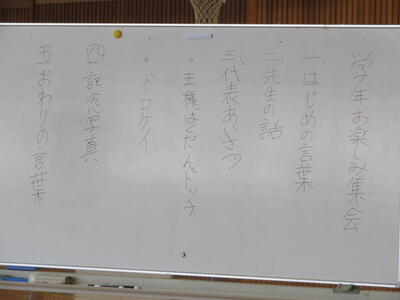 学年お楽しみ集会
一、はじめの言葉
二、先生の話
三、代表あいさつ
。王様ばくだんドッチ
。ドロケイ
四、記念写真
五、おわりの言葉